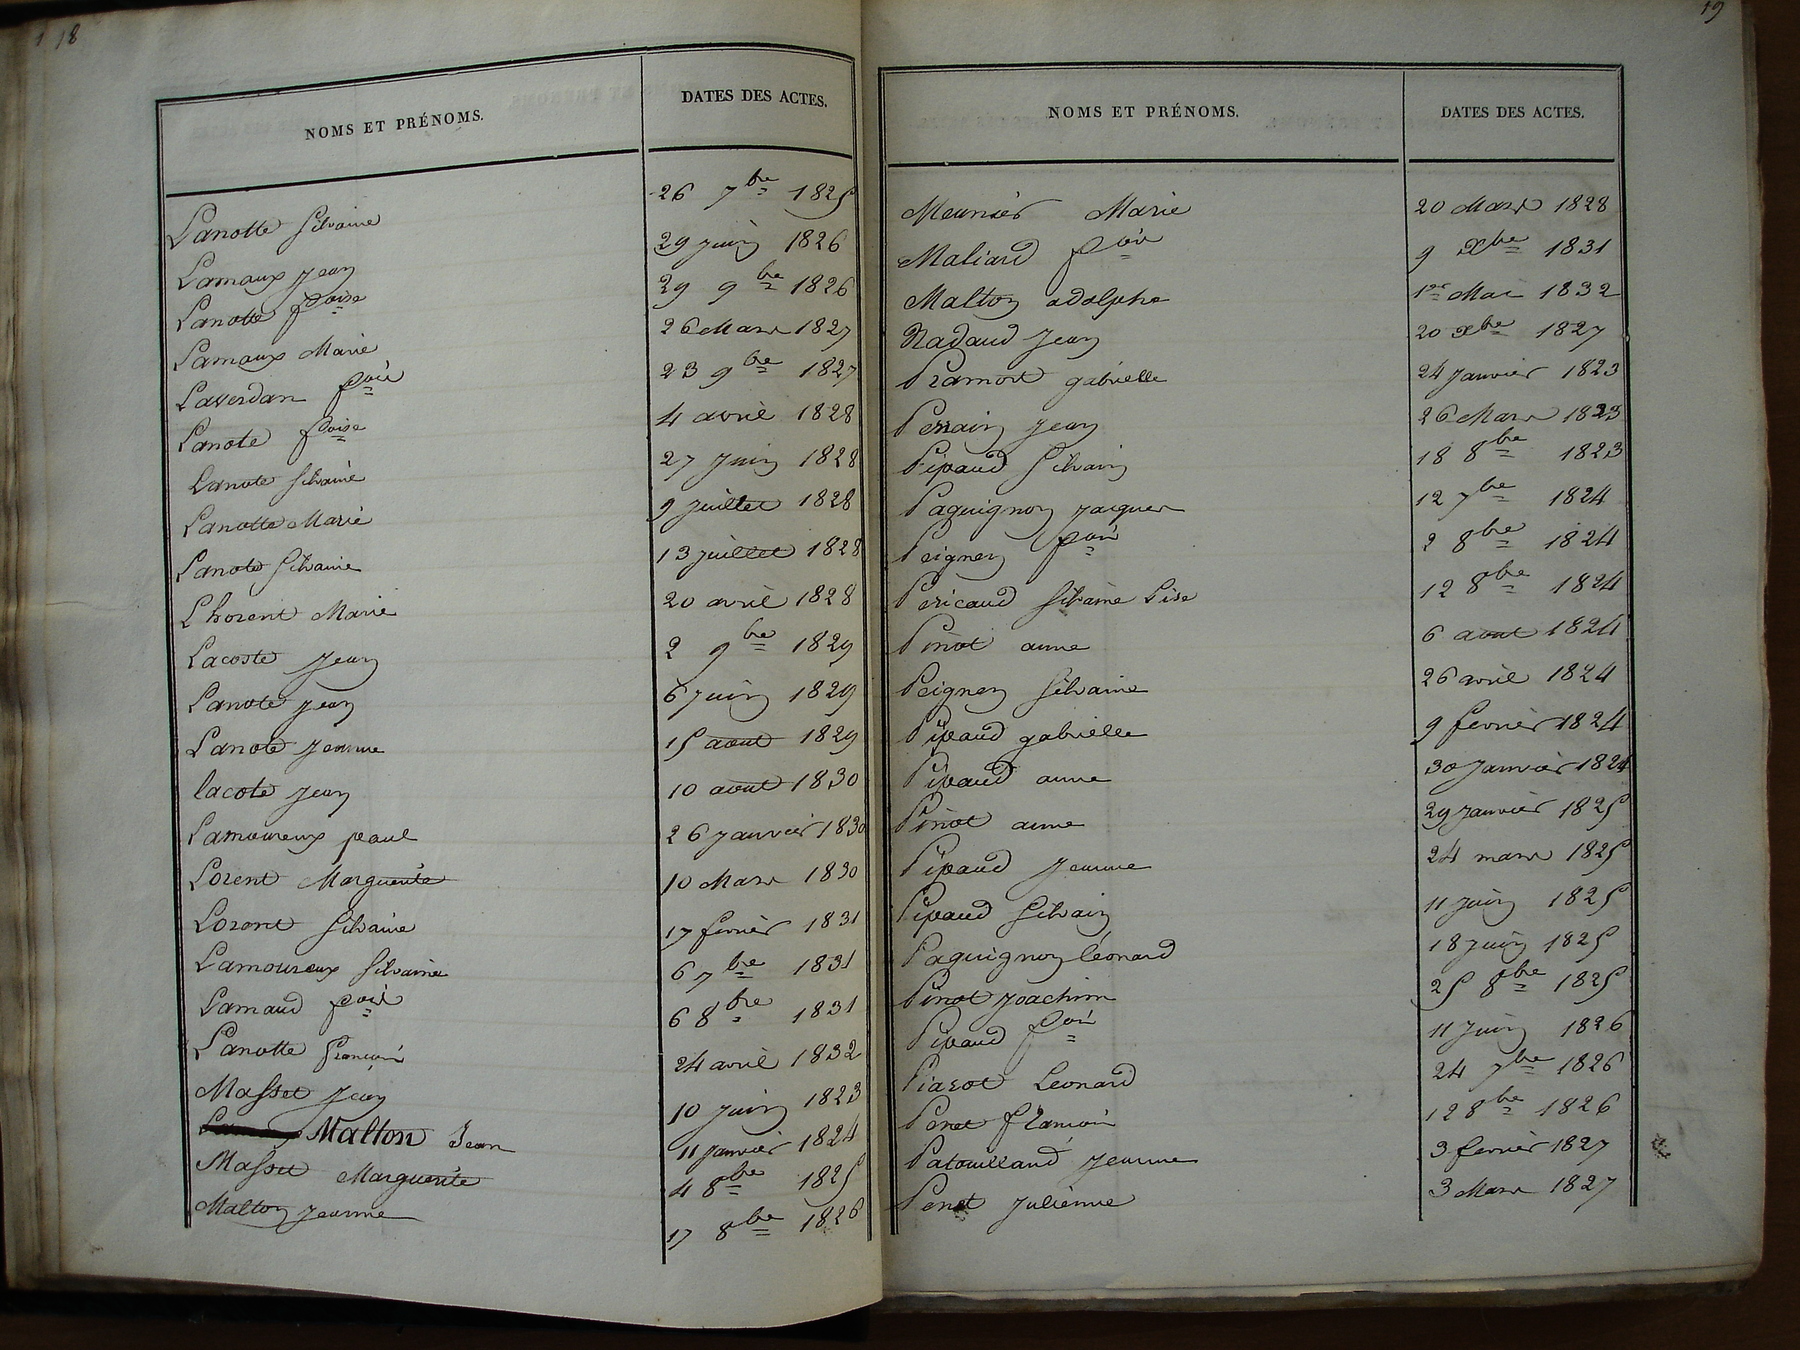 18
NOMS ET PRÉNOMS. DATES DES ACTES.
Lanotte Silvaine 26 7bre 1825
Lamaux Jean 29 juin 1826
Lanotte foise 29 9bre 1826
Lamaux Marie 26 Mars 1827
Laverdan fois 23 9bre 1827
Lanote foise 4 avril 1828
Lanote Silvaine 27 juin 1828
Lanotte Marie 9 juillet 1828
Lanote Silvaine 13 juillet 1828
Lhorent Marie 20 avril 1828
Lacoste Jean 2 9bre 1829
Lanote Jean 6 juin 1829
Lanote Jeanne 15 aout 1829
lacote Jean 10 aout 1830
Lamoureux paul 26 janvier 1830
Lorent Marguerite 10 Mars 1830
Loront Silvaine 17 fevrier 1831
Lamoureux Silvaine 6 7bre 1831
Lamaud fois 6 8bre 1831
Lanotte francois 24 avril 1832
Masset Jean 10 juin 1823
Malton Jean 11 janvier 1824
Masset Marguerite 4 8bre 1825
Malton Jeanne 17 8bre 1826
19
NOMS ET PRÉNOMS. DATES DES ACTES.
Meunier Marie 20 Mars 1828
Maliard fois 9 Xbre 1831
Malton adolphe 1er Mai 1832
Nadaud Jean 20 xbre 1827
Pramort gabrielle 24 janvier 1823
Perrain Jean 26 Mars 1823
Pipaud Silvain 18 8bre 1823
Paquignon jacques 12 7bre 1824
Peignen fois 2 8bre 1824
Pericaud Silvaine Lise 12 8bre 1824
Pinot anne 6 aout 1824
Peignen Silvaine 26 avril 1824
Pipaud gabrielle 9 fevrier 1824
Pipaud anne 30 janvier 1824
Pinot anne 29 janvier 1825
Pipaud Jeanne 24 mars 1825
Pipaud Silvain 11 juin 1825
Paquignon léonard 18 juin 1825
Pinot joachim 25 8bre 1825
Pipaud fois 11 juin 1826
Piarot Leonard 24 7bre 1826
Penet francois 12 8bre 1826
Patouilland Jeanne 3 fevrier 1827
Penet Julienne 3 Mars 1827